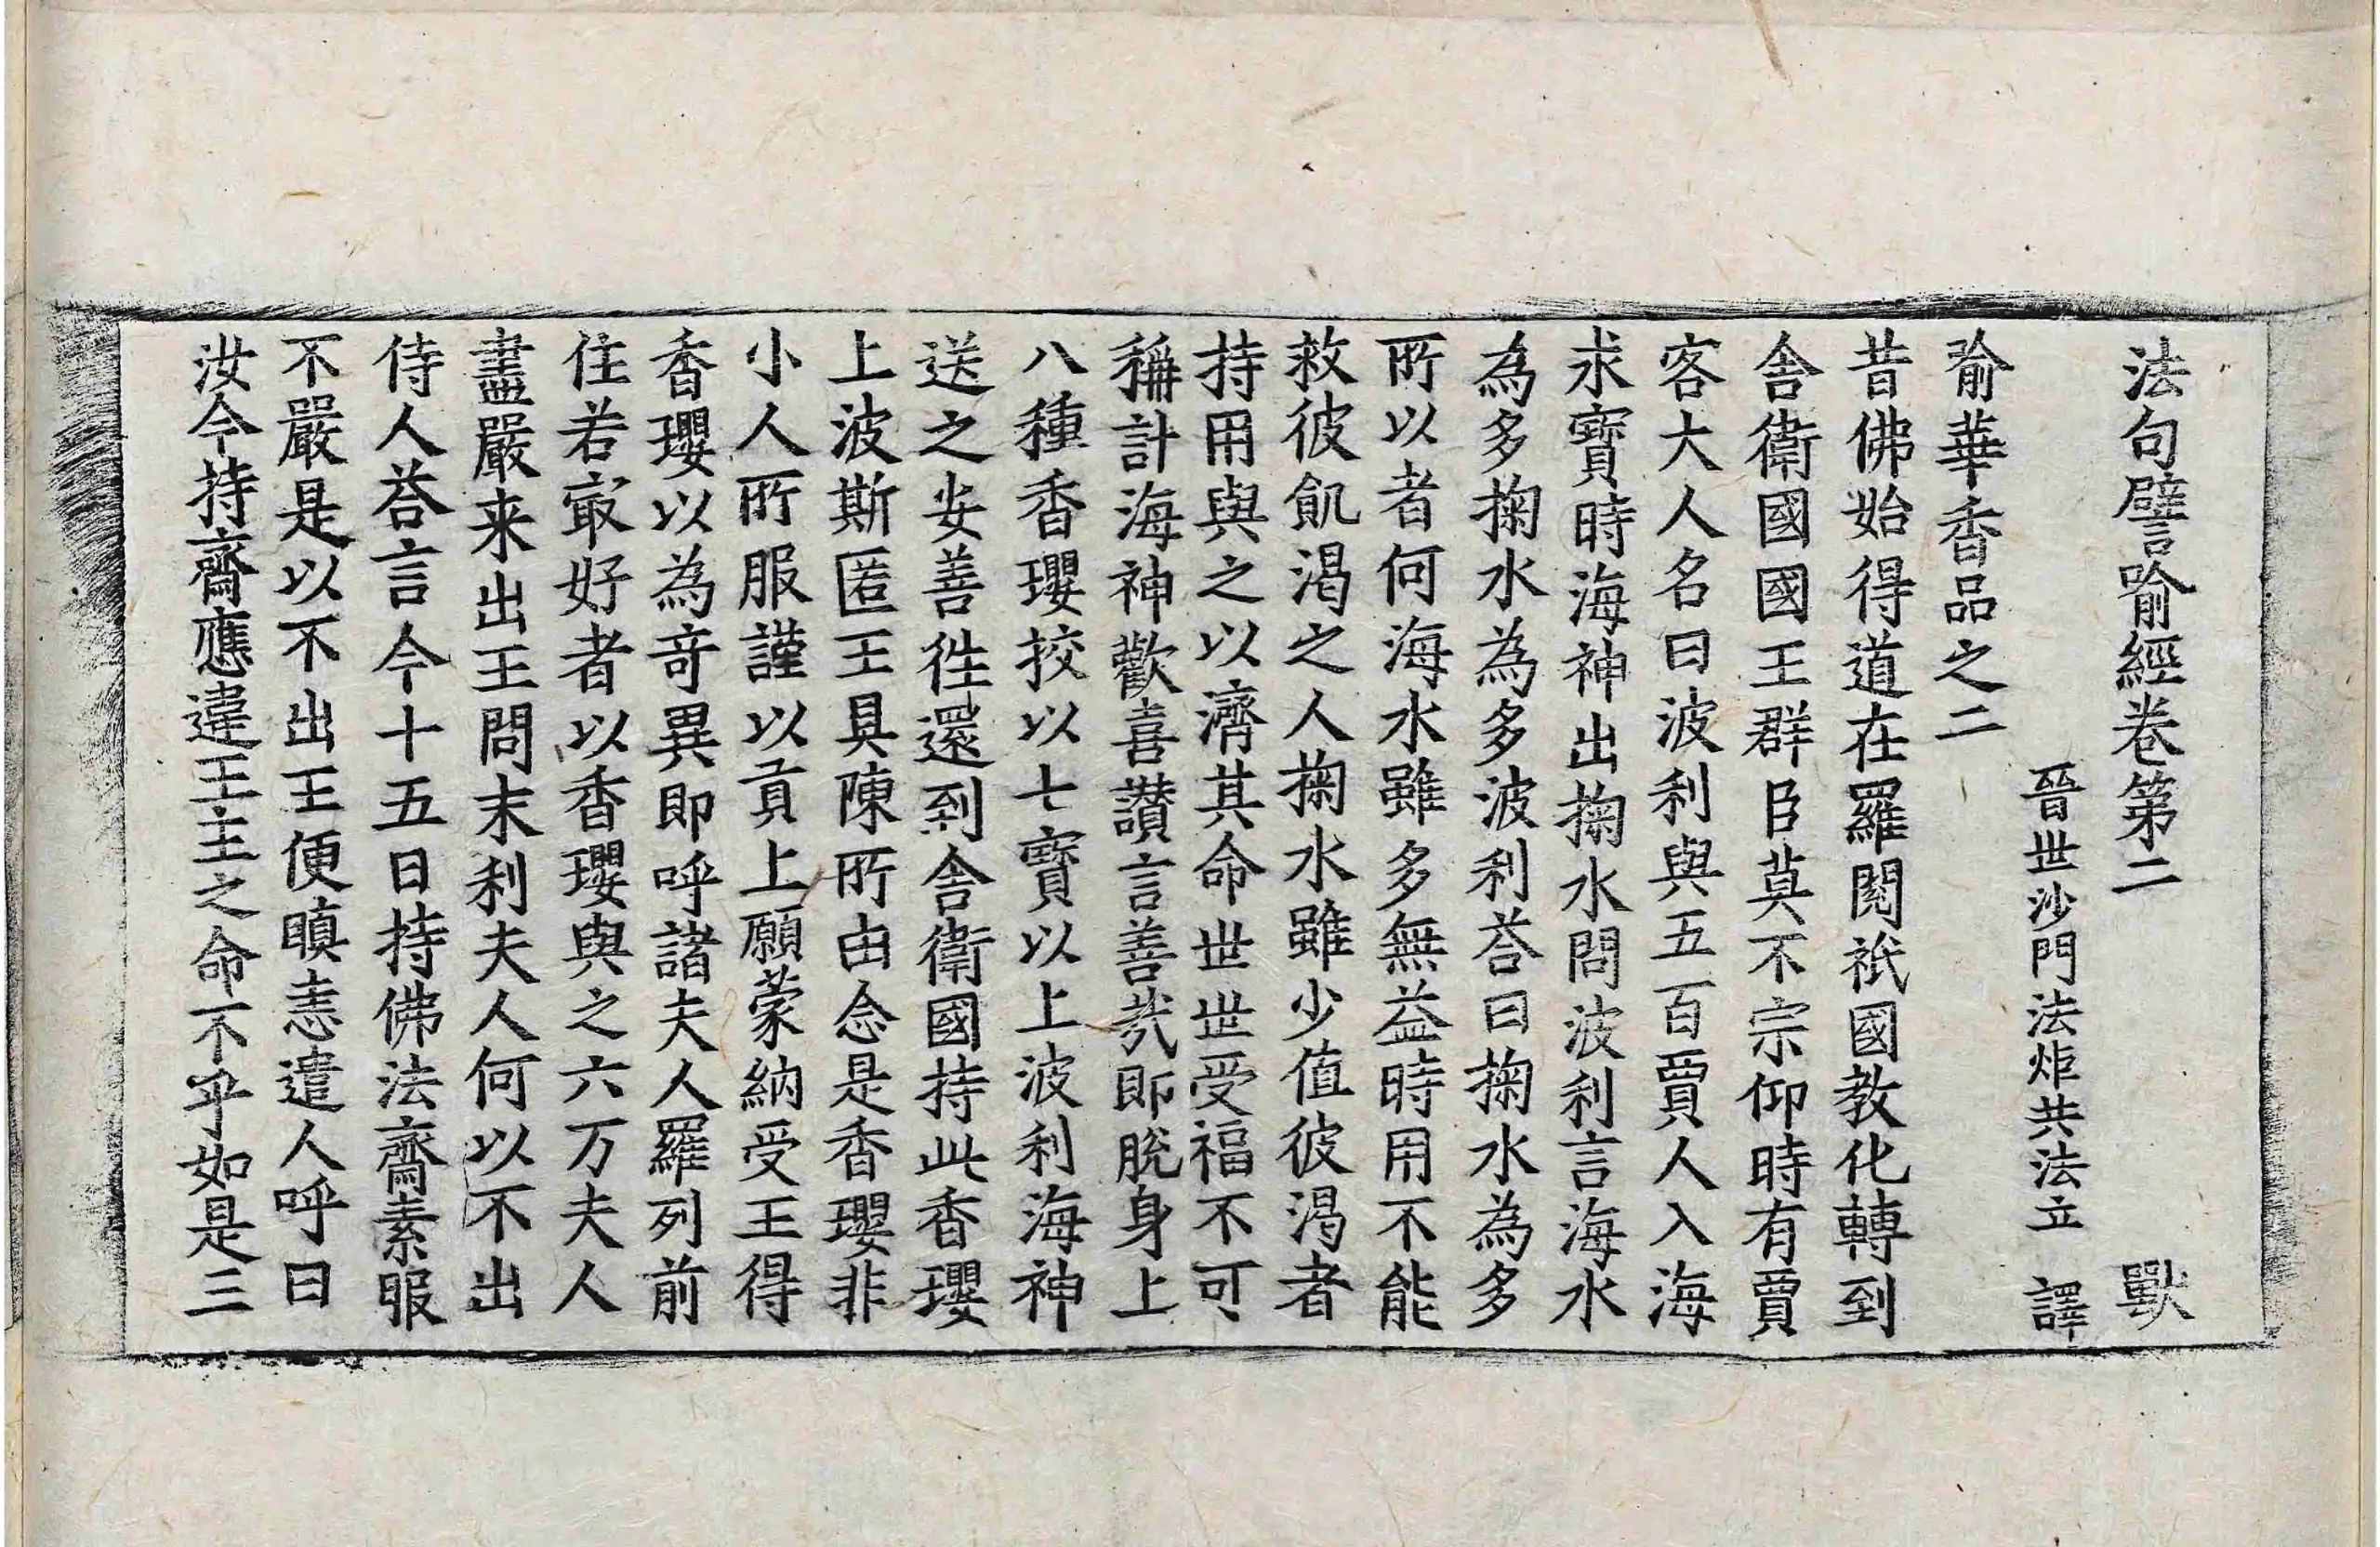 法句譬喻經卷第二 獸
晉世沙門法炬共法立 譯
喻華香品之二
昔佛始得道在羅閱祇國教化轉到
舍衛國國王群臣莫不宗仰時有賈
客大人名曰波利與五百賈人入海
求寶時海神出掬水問波利言海水
為多掬水為多波利荅曰掬水為多
所以者何海水雖多無益時用不能
救彼飢渴之人掬水雖少值彼渴者
持用與之以濟其命世世受福不可
稱計海神歡喜讚言善哉即脫身上
八種香瓔挍以七寶以上波利海神
送之安善徃還到舍衛國持此香瓔
上波斯匿王具陳所由念是香瓔非
小人所服謹以貢上願蒙納受王得
香瓔以為奇異即呼諸夫人羅列前
住若㝡好者以香瓔與之六万夫人
盡嚴来出王問末利夫人何以不出
侍人荅言今十五日持佛法齋素服
不嚴是以不出王便瞋恚遣人呼曰
汝今持齋應違王主之命不乎如是三